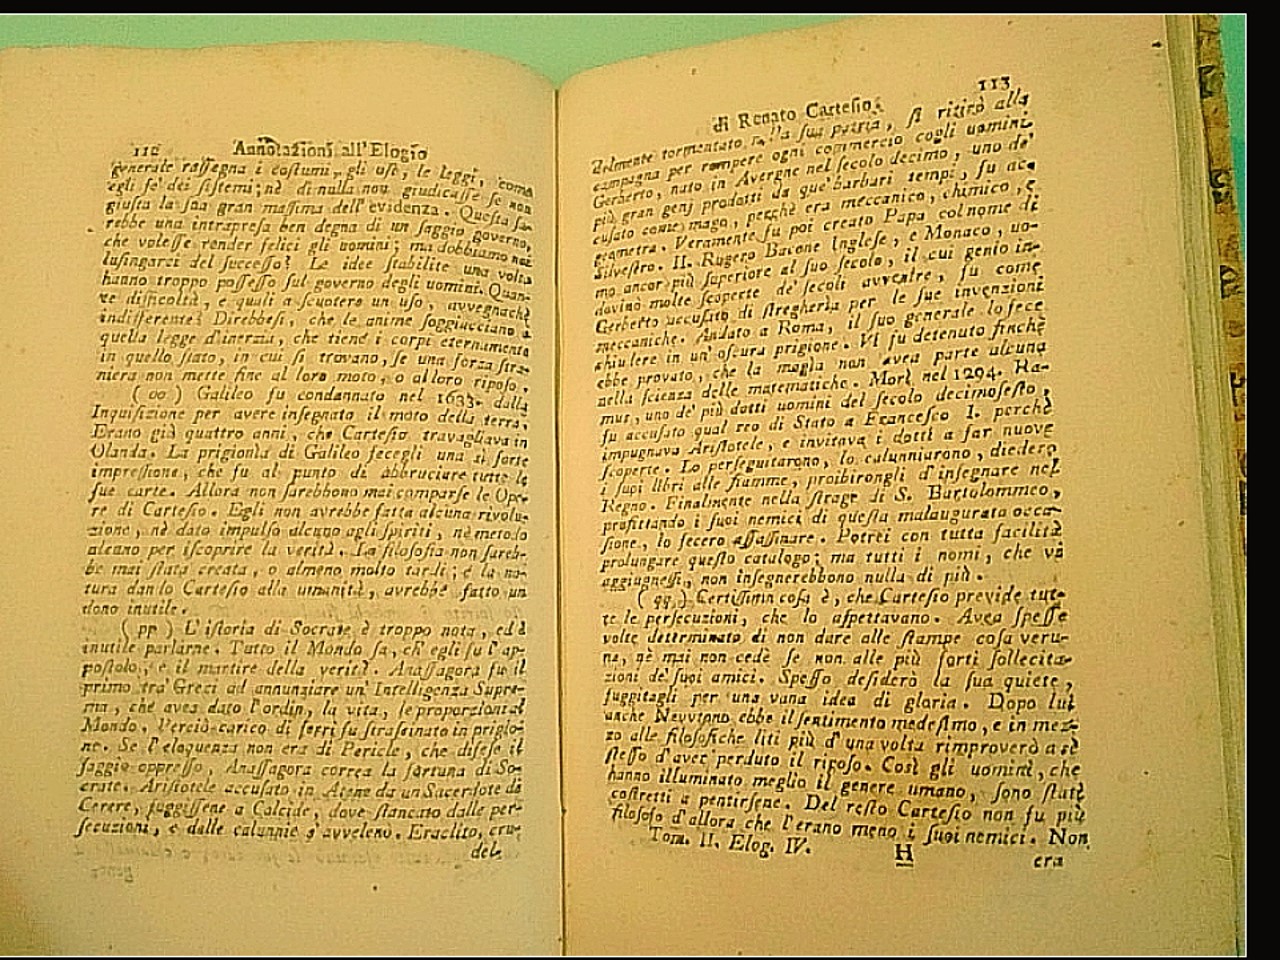 112 Annotazioni all'Elogio
generale rassegna i costumi, gli usi, le leggi, come
egli fe' dei sistemi; nè di nulla non giudicasse se non
giusta la sua gran massima dell'evidenza. Questa sa-
rebbe una intrapresa ben degna di un saggio governo,
che volesse render felici gli uomini; ma dobbiamo noi
lusingarci del successo? Le idee stabilite una volta
hanno troppo possesso sul governo degli uomini. Quan-
te difficoltà, e quali a scuotere un uso, avvegnachè
indifferente? Direbbesi, che le anime soggiacciano a
quella legge d'inerzia, che tiene i corpi eternamente
in quello stato, in cui si trovano, se una forza stra-
niera non mette fine al loro moto, o al loro riposo.
(oo) Galileo fu condannato nel 1633. dalla
Inquisizione per avere insegnato il moto della terra.
Erano già quattro anni, che Cartesio travagliava in
Olanda. La prigionìa di Galileo fecegli una sì forte
impressione, che fu al punto di abbruciare tutte le
sue carte. Allora non sarebbono mai comparse le Ope-
re di Cartesio. Egli non avrebbe fatta alcuna rivolu-
zione, nè dato impulso alcuno agli spiriti, nè metodo
alcuno per iscoprire la verità. La filosofia non sareb-
be mai stata creata, o almeno molto tardi; e la na-
tura dando Cartesio alla umanità, avrebbe fatto un
dono inutile.
(pp) L'istoria di Socrate è troppo nota, ed è
inutile parlarne. Tutto il Mondo sa, ch'egli fu l'ap-
postolo, e il martire della verità. Anassagora fu il
primo tra' Greci ad annunziare un' Intelligenza Supre-
ma, che avea dato l'ordin, la vita, le proporzioni al
Mondo. Perciò carico di ferri fu strascinato in prigio-
ne. Se l'eloquenza non era di Pericle, che difese il
saggio oppresso, Anassagora correa la fortuna di So-
crate. Aristotele accusato in Atene da un Sacerdote di
Cerere, fuggissene a Calcide, dove stancato dalle per-
secuzioni, e dalle calunnie s'avvelenò. Eraclito, cru-
del-
di Renato Cartesio. 113
delmente tormentato nella sua patria, si ritirò alla
campagna per rompere ogni commercio cogli uomini.
Gerberto, nato in Avergne nel secolo decimo, uno de'
più gran genj prodotti da que' barbari tempi, fu ac-
cusato come mago, perchè era meccanico, chimico, e
geometra. Veramente fu poi creato Papa col nome di
Silvestro. II. Rugero Bacone Inglese, e Monaco, uo-
mo ancor più superiore al suo secolo, il cui genio in-
dovinò molte scoperte de' secoli avvenire, fu come
Gerberto accusato di stregherìa per le sue invenzioni
meccaniche. Andato a Roma, il suo generale lo fece
chiudere in un' oscura prigione. Vi fu detenuto finchè
ebbe provato, che la magìa non avea parte alcuna
nella scienza delle matematiche. Morì nel 1294. Ra-
mus, uno de' più dotti uomini del secolo decimosesto,
fu accusato qual reo di Stato a Francesco I. perchè
impugnava Aristotele, e invitava i dotti a far nuove
scoperte. Lo perseguitarono, lo calunniarono, diedero
i suoi libri alle fiamme, proibirongli d'insegnare nel
Regno. Finalmente nella strage di S. Bartolommeo,
profittando i suoi nemici di questa malaugurata occa-
sione, lo fecero assassinare. Potrei con tutta facilità
prolungare questo catalogo; ma tutti i nomi, che vi
aggiugnessi, non insegnerebbono nulla di più.
(qq) Certissima cosa è, che Cartesio previde tut-
te le persecuzioni, che lo aspettavano. Avea spesse
volte determinato di non dare alle stampe cosa veru-
na, nè mai non cedè se non alle più forti sollecita-
zioni de' suoi amici. Spesso desiderò la sua quiete,
fuggitagli per una vana idea di gloria. Dopo lui
anche Nevvtono ebbe il sentimento medesimo, e in mez-
zo alle filosofiche liti più d'una volta rimproverò a sè
stesso d'aver perduto il riposo. Così gli uomini, che
hanno illuminato meglio il genere umano, sono stati
costretti a pentirsene. Del resto Cartesio non fu più
filosofo d'allora che l'erano meno i suoi nemici. Non
Tom. II. Elog. IV. H era